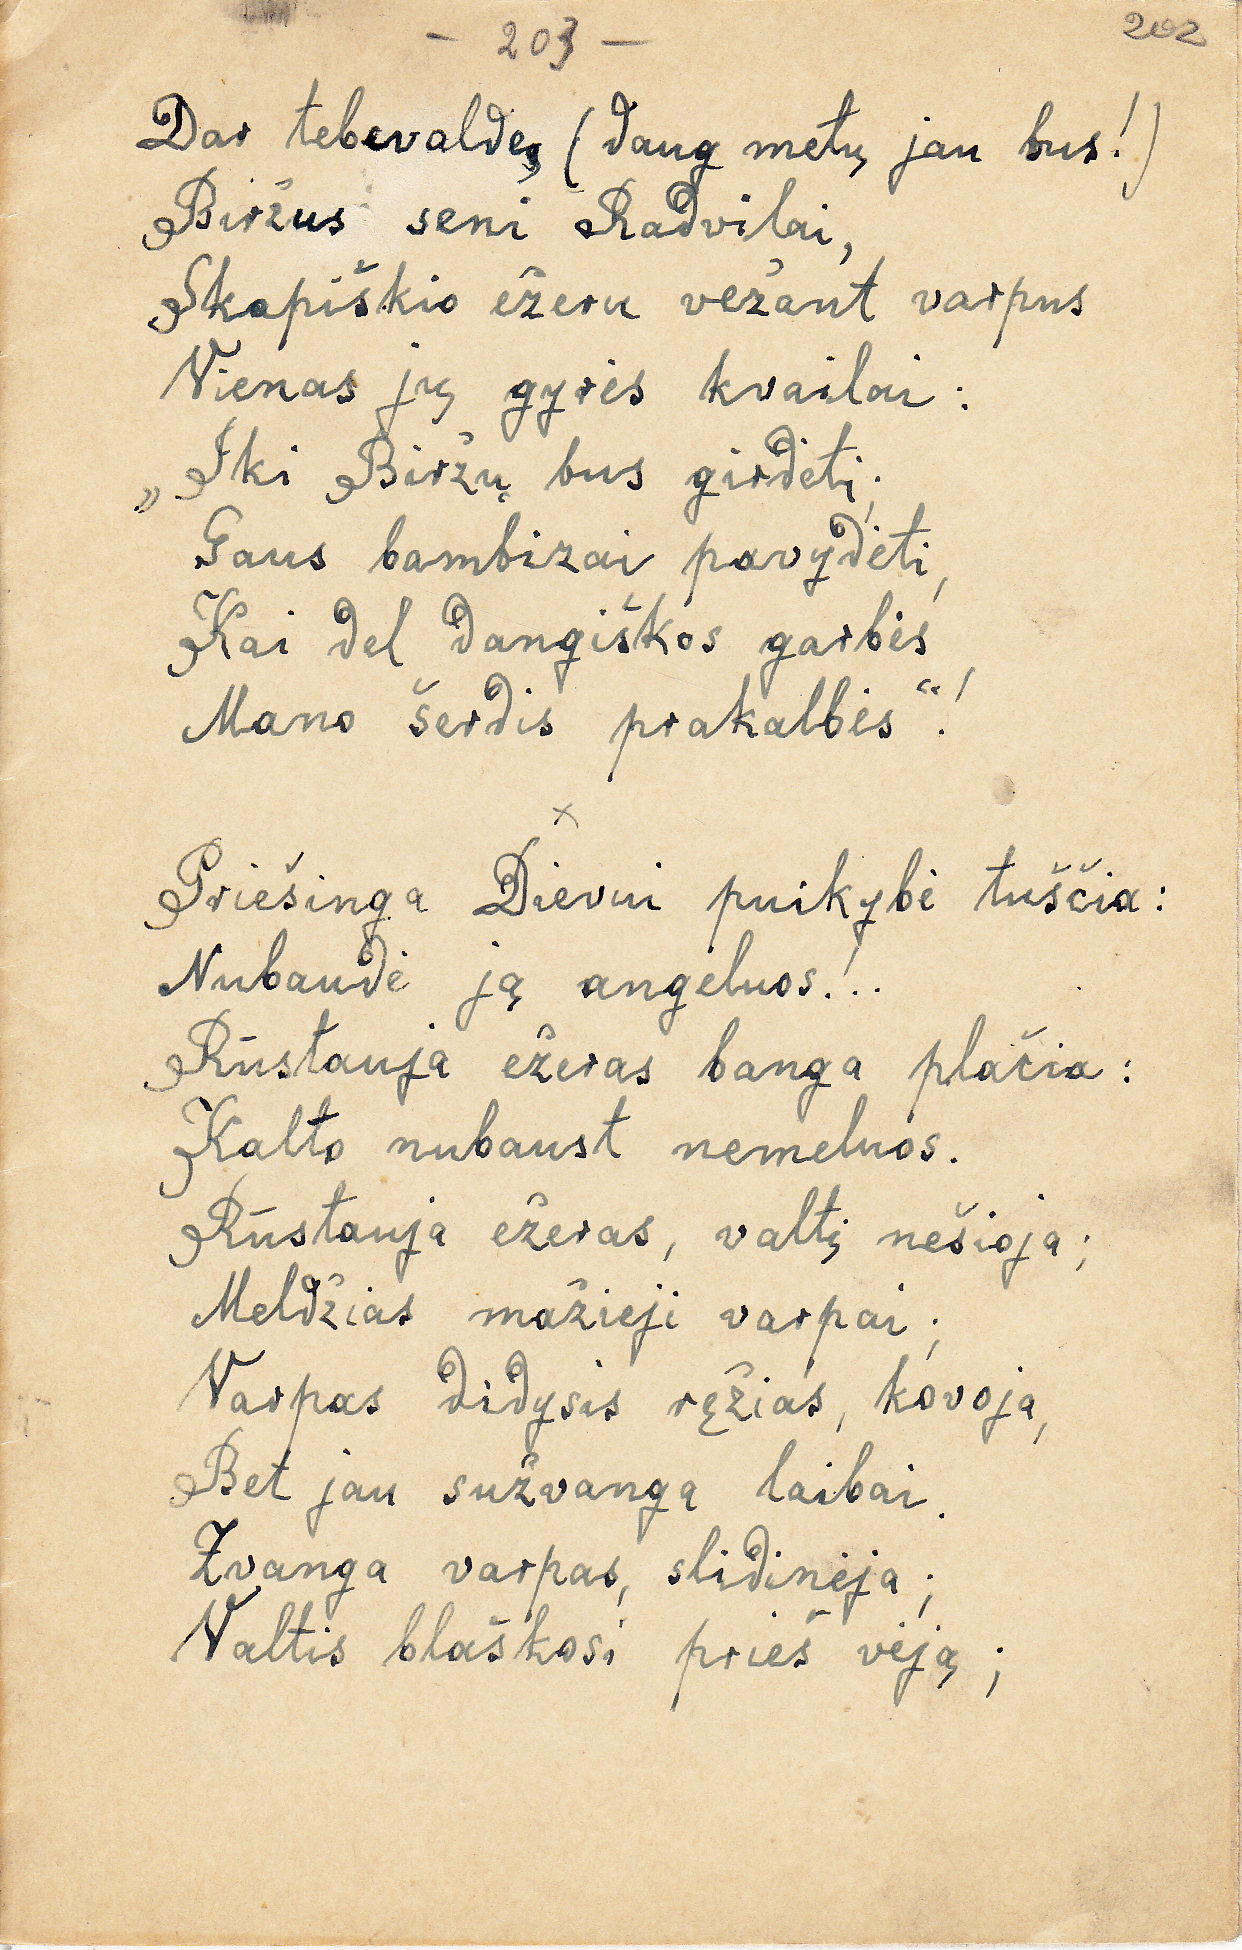 - 203 -
202
Dar tebevaldę (daug metų jau bus!)
Biržus seni Radvilai,
Skapiškio ežeru vežant varpus
Vienas jų gyrės kvailai:
„Iki Biržų bus girdėti;
Gaus bambizai pavydėti,
Kai del dangiškos garbės
Mano šerdis prakalbės“!
x
Priešinga Dievui puikybė tuščia:
Nubaudė ją angeluos!..
Rūstauja ežeras banga plačia:
Kalto nubaust nemeluos.
Rūstauja ežeras, valtį nešioja;
Meldžias mažieji varpai;
Varpas didysis ręžias, kovoja,
Bet jau sužvanga laibai.
Zvanga varpas, slidinėja;
Valtis blaškosi prieš vėją;